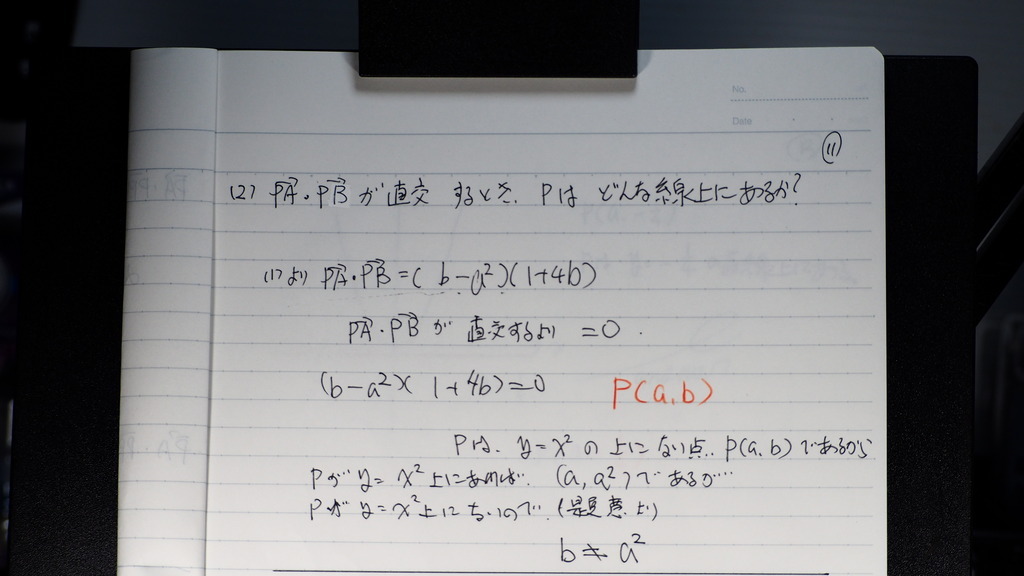 No.
Date
11
(2) PA・PB が 直交 するとき、Pは どんな線上にあるか?
(1)より PA・PB=( b-a²)(1+4b)
PA・PB が 直交するより =0.
(b-a²)(1+4b)=0
P(a,b)
Pは、y=x² の 上に ない点.. P(a,b) であるから
Pが y=x² 上にあれば. (a,a²)であるが…
Pが y=x²上にないので.(題意より)
b≠a²